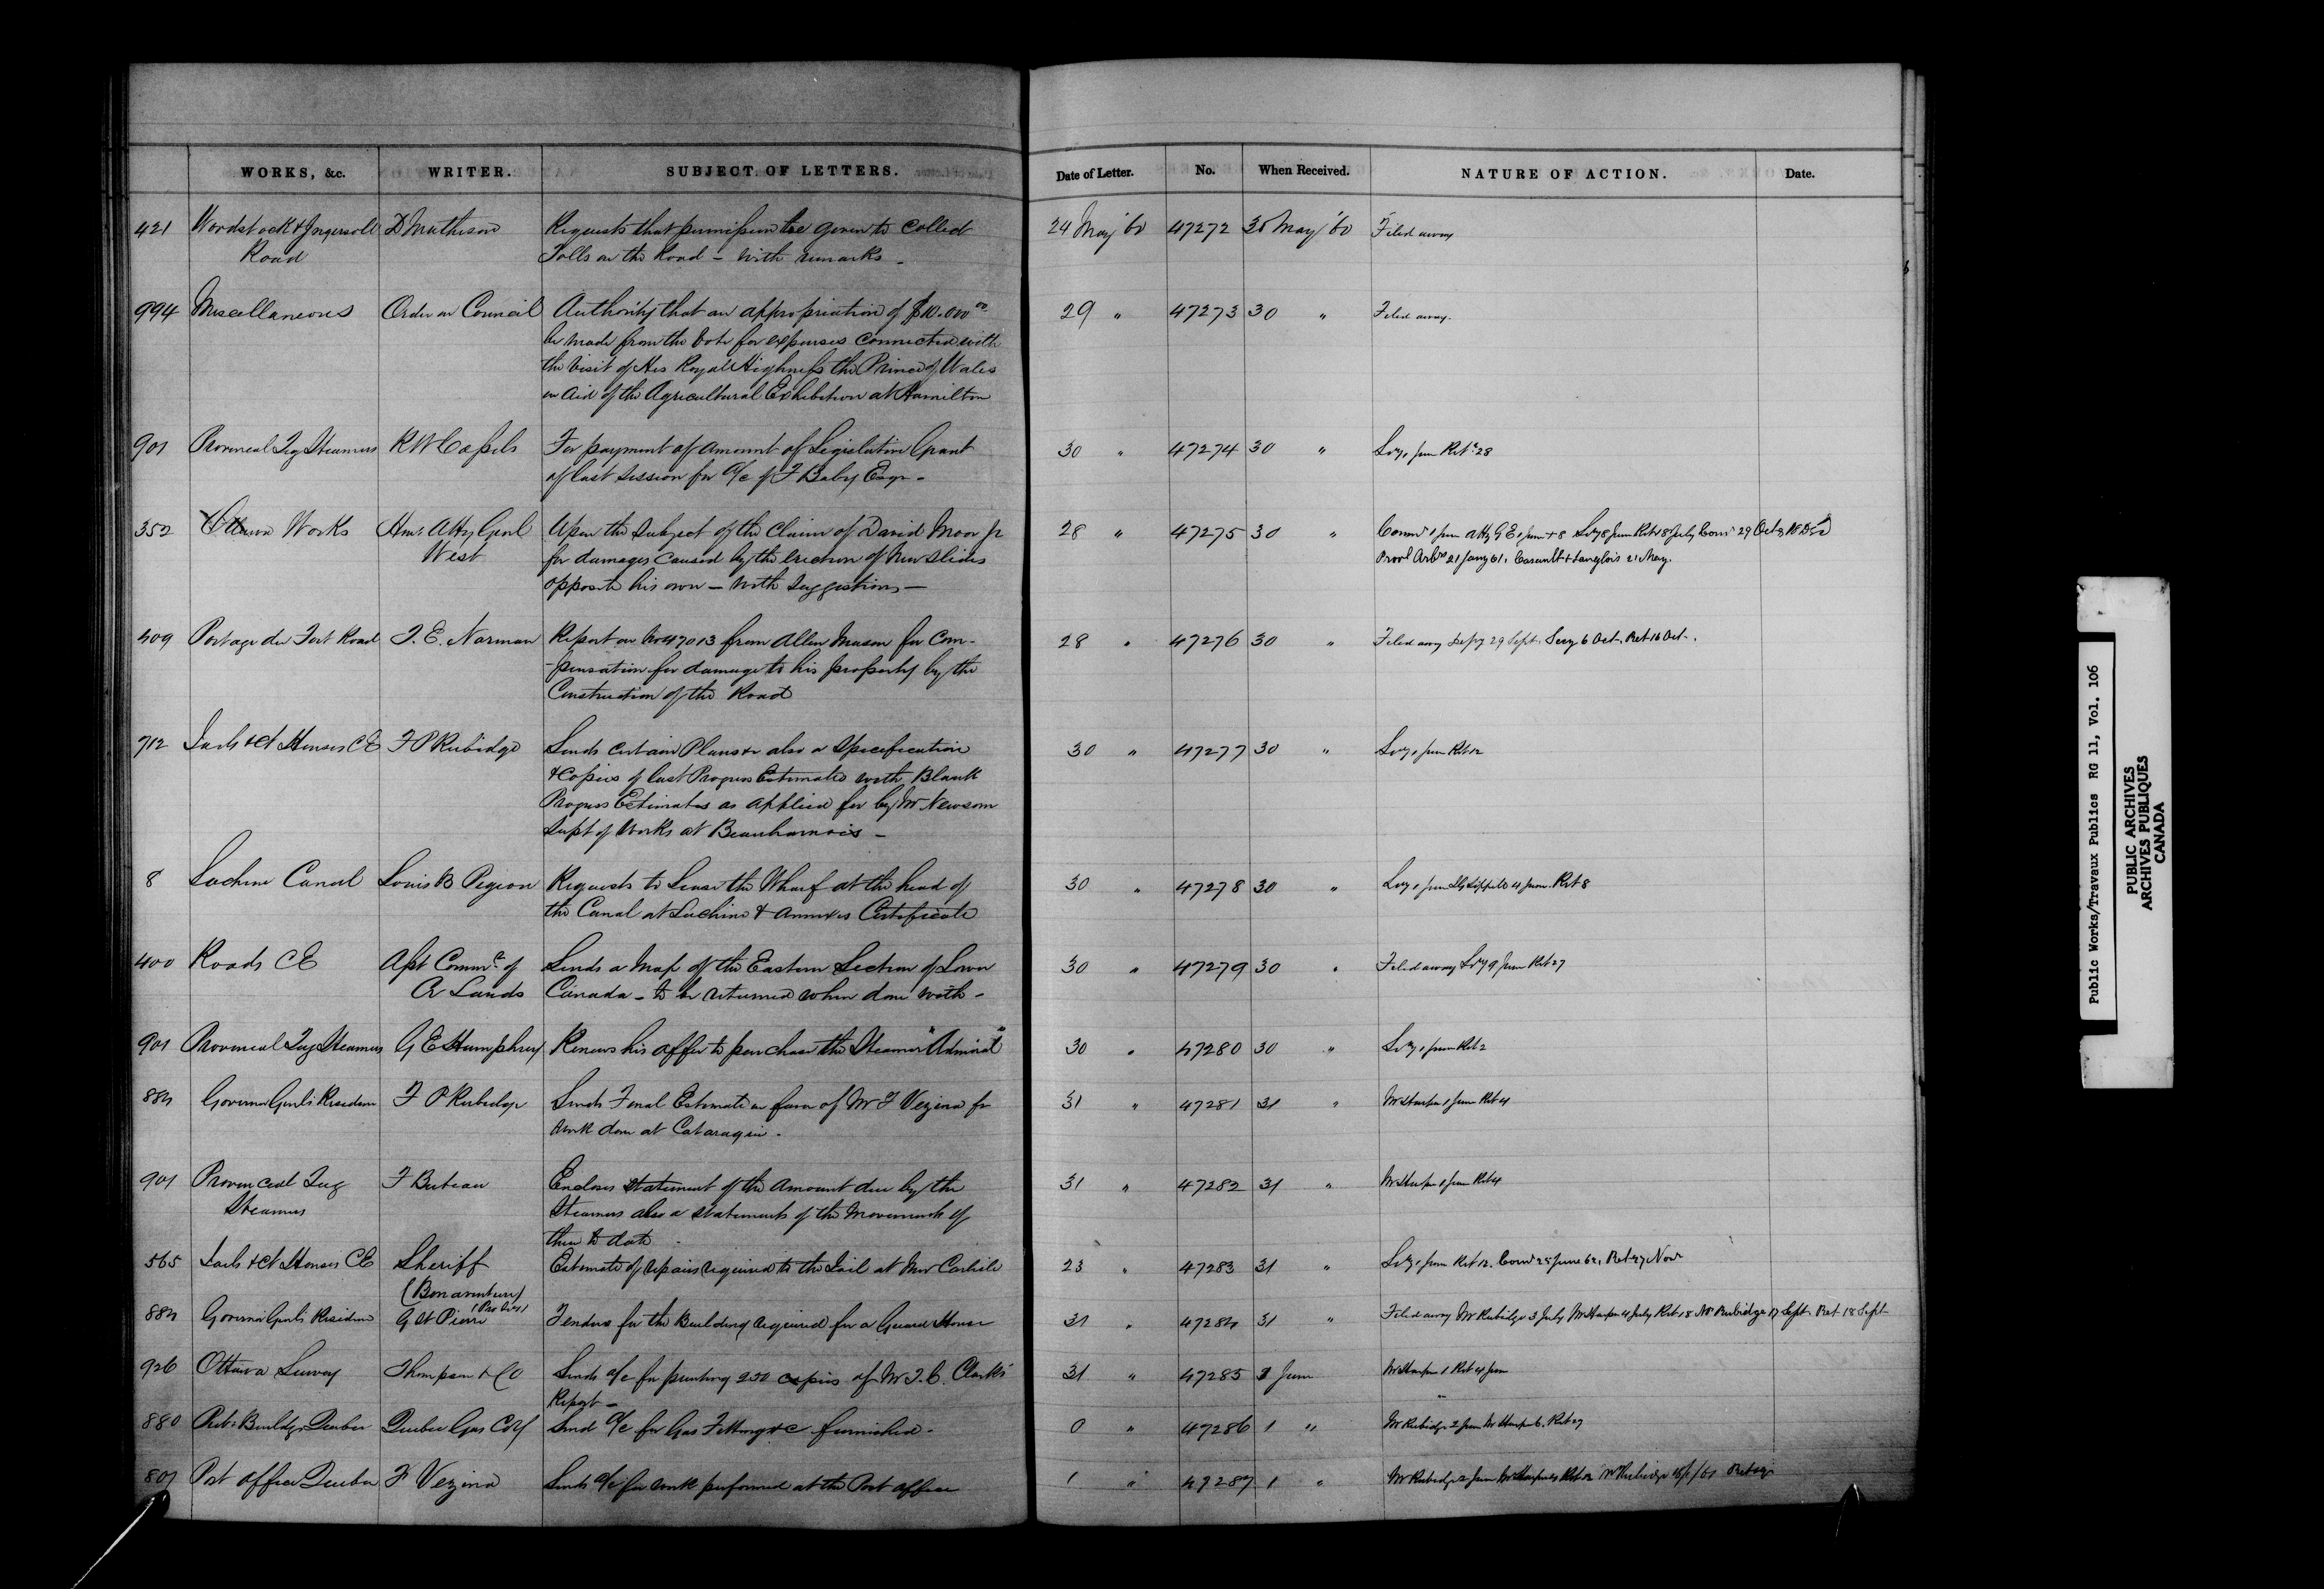 WORKS, &c. WRITER. SUBJECT OF LETTERS. Date of Letter. No. When Received. NATURE OF ACTION. Date.
421 Woodstock & Ingersoll D Matheson Requests that permission be given to Collect 24 May '60 47272 30 May '60 Filed away
Road Tolls on the Road - with remarks -
994 Miscellaneous Order in Council Authority that an appropriation of $10.000 00 29 " 47273 30 " Filed away.
be made from the vote for expenses connected with
the visit of His Royal Highness the Prince of Wales
in Aid of the Agricultural Exhibition at Hamilton
901 Provincial Tug Steamers R W Cassels For payment of amount of Legislative Grant 30 " 47274 30 " 1 June Ret 28
of last Session for a/c of F Baby Esqr -
352 Ottawa Works Hon Atty Genl Upon the Subject of the Claim of David Moor Jr 28 " 47275 30 "
West for damages caused by the erection of New Slides 21 Jany 61. Casault & Langlois 21 May.
opposite his own - with suggestions -
409 Portage du Fort Road T. E. Norman Report on No 47013 from Allen Mason for Com- 28 " 47276 30 " Filed away 29 Sept. Secy 6 Oct. Ret 16 Oct.
-pensation for damage to his property by the
Construction of the Road
712 Jails & Ct Houses CE F P Rubidge Sends certain Plans & also a Specification 30 " 47277 30 " 1 June Ret 12
& Copies of last Progress Estimates with Blank
Progress Estimates as applied for by Mr Newsom
Supt of Works at Beauharnois -
8 Lachine Canal Louis B Pigeon Requests to Lease the Wharf at the head of 30 " 47278 30 " 4 June. Ret 8
the Canal at Lachine & annexes Certificate
400 Roads CE Asst Commr of Sends a Map of the Eastern Section of Lower 30 " 47279 30 " Filed away 9 June Ret 27
Cr Lands Canada - to be returned when done with -
901 Provincial Tug Steamers G E Humphrey Renews his offer to purchase the Steamer "Admiral" 30 " 47280 30 " 1 June Ret 2
884 Governor Genls Residence F P Rubidge Sends Final Estimate in favor of Mr F Vezina for 31 " 47281 31 " 1 June Ret 4
work done at Cataraqui.
901 Provincial Tug F Buteau Encloses Statement of the Amount due by the 31 " 47282 31 " 1 June Ret 4
Steamers Steamers also a statement of the Movements of
them to date
565 Jails & Ct Houses CE Sheriff Estimate of repairs required to the Jail at New Carlisle 23 " 47283 31 " 1 June Ret 12. 25 June 62,
(Bonaventure)
884 Governor Genls Residence G St Pierre Tenders for the Building required for a Guard House 31 " 47284 31 " Filed away Mr Rubidge 3 July 4 July Ret 18 Mr Rubidge 17 Sept. Ret 18 Sept
926 Ottawa Survey Thompson & Co Sends a/c for printing 250 copies of Mr T. C. Clarke's 31 " 47285 1 June 1 Ret 4 June
Report -
880 Pub: Buildgs Quebec Quebec Gas Coy Send a/c for Gas Fittings &c furnished - 0 " 47286 1 " Mr Rubidge 2 June Ret 27
807 Post Office Quebec F Vezina Sends a/c for work performed at the Post Office 1 " 47287 1 " Mr Rubidge 2 June
Public Works/Travaux Publics RG 11, Vol. 106
PUBLIC ARCHIVES
ARCHIVES PUBLIQUES
CANADA